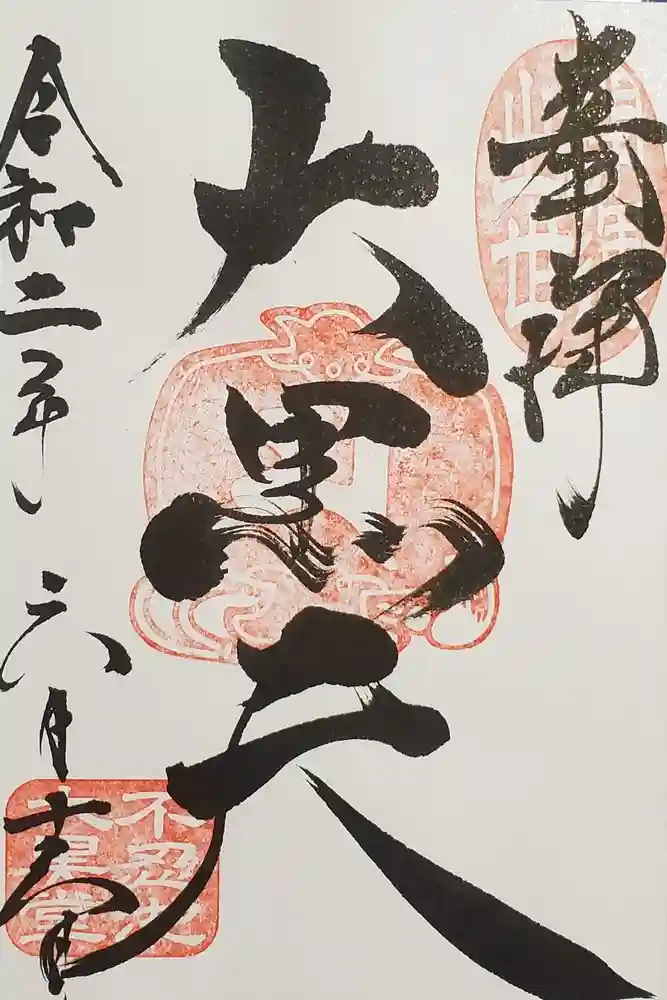 奉拝
大黒天
令和二年六月十六日
不忍池
大黒堂